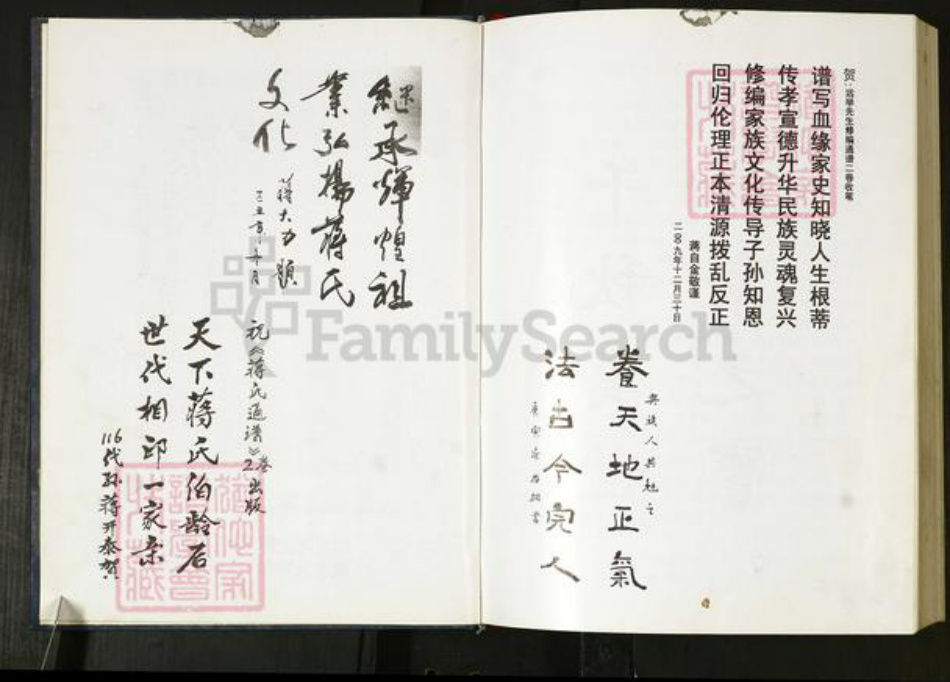 贺:远举先生修编通谱二卷收笔
谱写血缘家史知晓人生根蒂
传孝宣德升华民族灵魂复兴
修编家族文化传导子孙知恩
回归伦理正本清源拨乱反正
蒋自金敬谨
二〇〇九年十二月三十日
與族人共勉之
養天地正氣
法古今完人
继承輝煌祖
業弘揚蒋氏
文化
蒋大力題
祝《蒋氏通谱》2卷出版
天下蒋氏伯龄后
世代相印一家亲
116代孙蒋开泰贺
FamilySearch